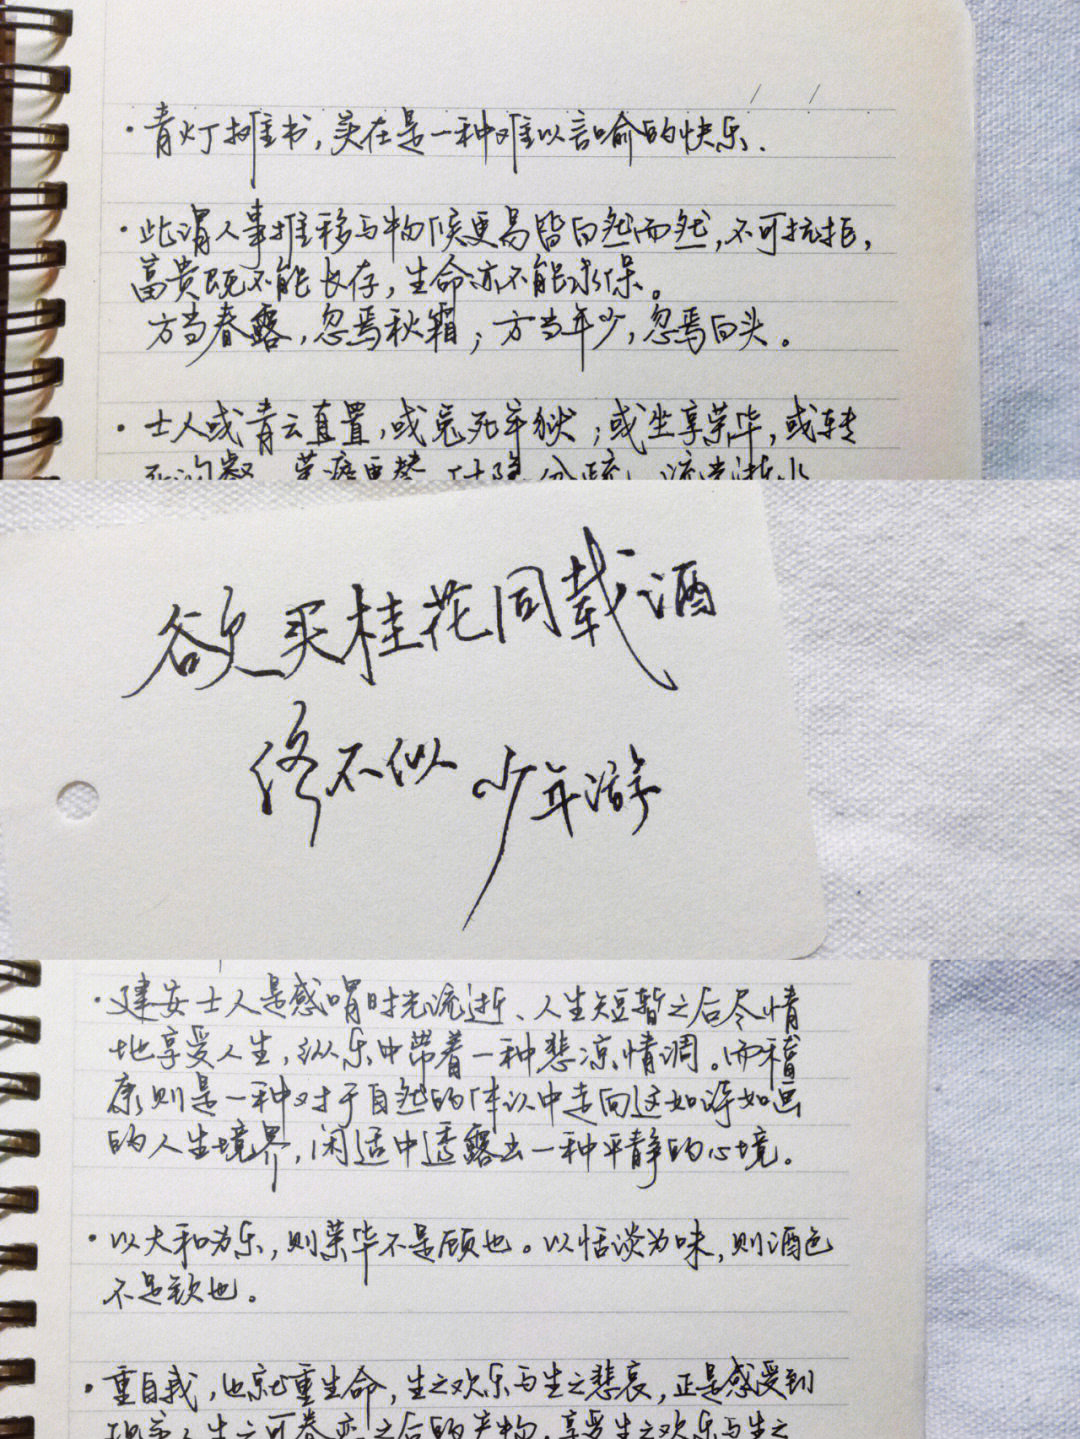 ·青灯摊书,实在是一种难以言喻的快乐.
·此谓人事推移与物候更易皆自然而然,不可抗拒,
富贵既不能长存,生命亦不能永保。
方当春露,忽焉秋霜;方当年少,忽焉白头。
·士人或青云直置,或冤死牢狱;或坐享荣华,或转
欲买桂花同载酒
终不似 少年游
·建安士人是感喟时光流逝、人生短暂之后尽情
地享受人生,纵乐中带着一种悲凉情调。而嵇
康则是一种对于自然的体认中走向这如诗如画
的人生境界,闲适中透露出一种平静的心境。
·以大和为乐,则荣华不足顾也。以恬淡为味,则酒色
不足钦也。
·重自我,也就重生命,生之欢乐与生之悲哀,正是感受到
人生之可眷恋之后的产物,享受生之欢乐与生之